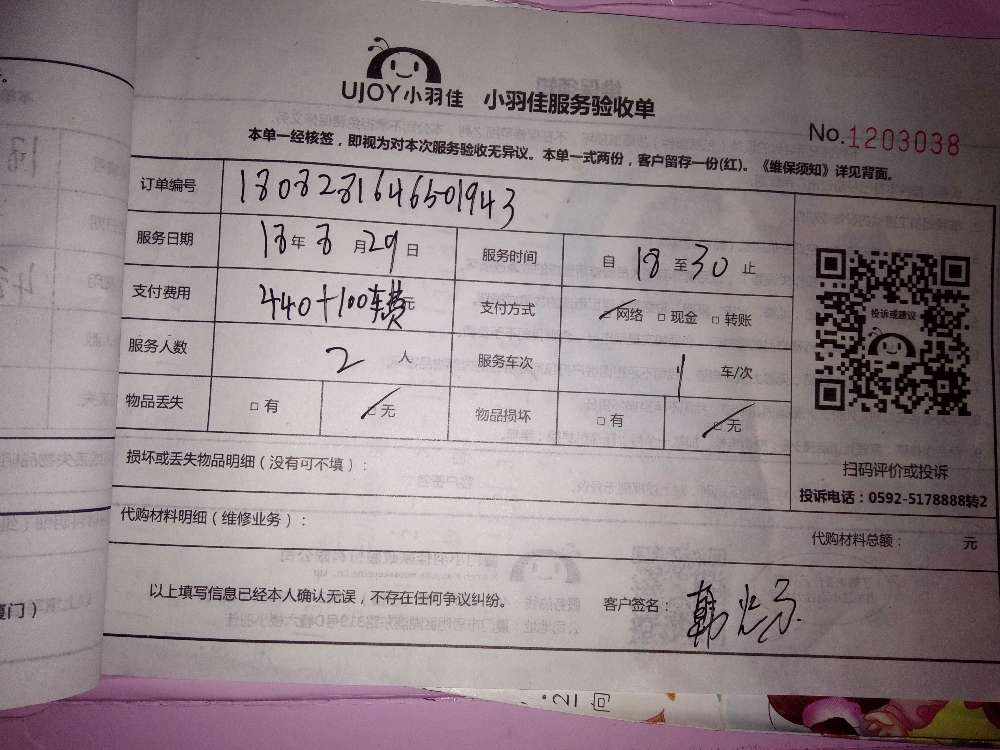 UJOY小羽佳 小羽佳服务验收单
No.1203038
本单一经核签，即视为对本次服务验收无异议。本单一式两份，客户留存一份(红)。《维保须知》详见背面。
订单编号 1808281646501943
服务日期 18年8月29日 服务时间 自 18 至 30 止
支付费用 440+100车费元 支付方式 ☑网络 □现金 □转账
投诉或建议
服务人数 2 人 服务车次 1 车/次
物品丢失 □有 ☑无 物品损坏 □有 ☑无
损坏或丢失物品明细（没有可不填）：
扫码评价或投诉
投诉电话：0592-5178888转2
代购材料明细（维修业务）： 代购材料总额： 元
以上填写信息已经本人确认无误，不存在任何争议纠纷。 客户签名： 韩
厦门）